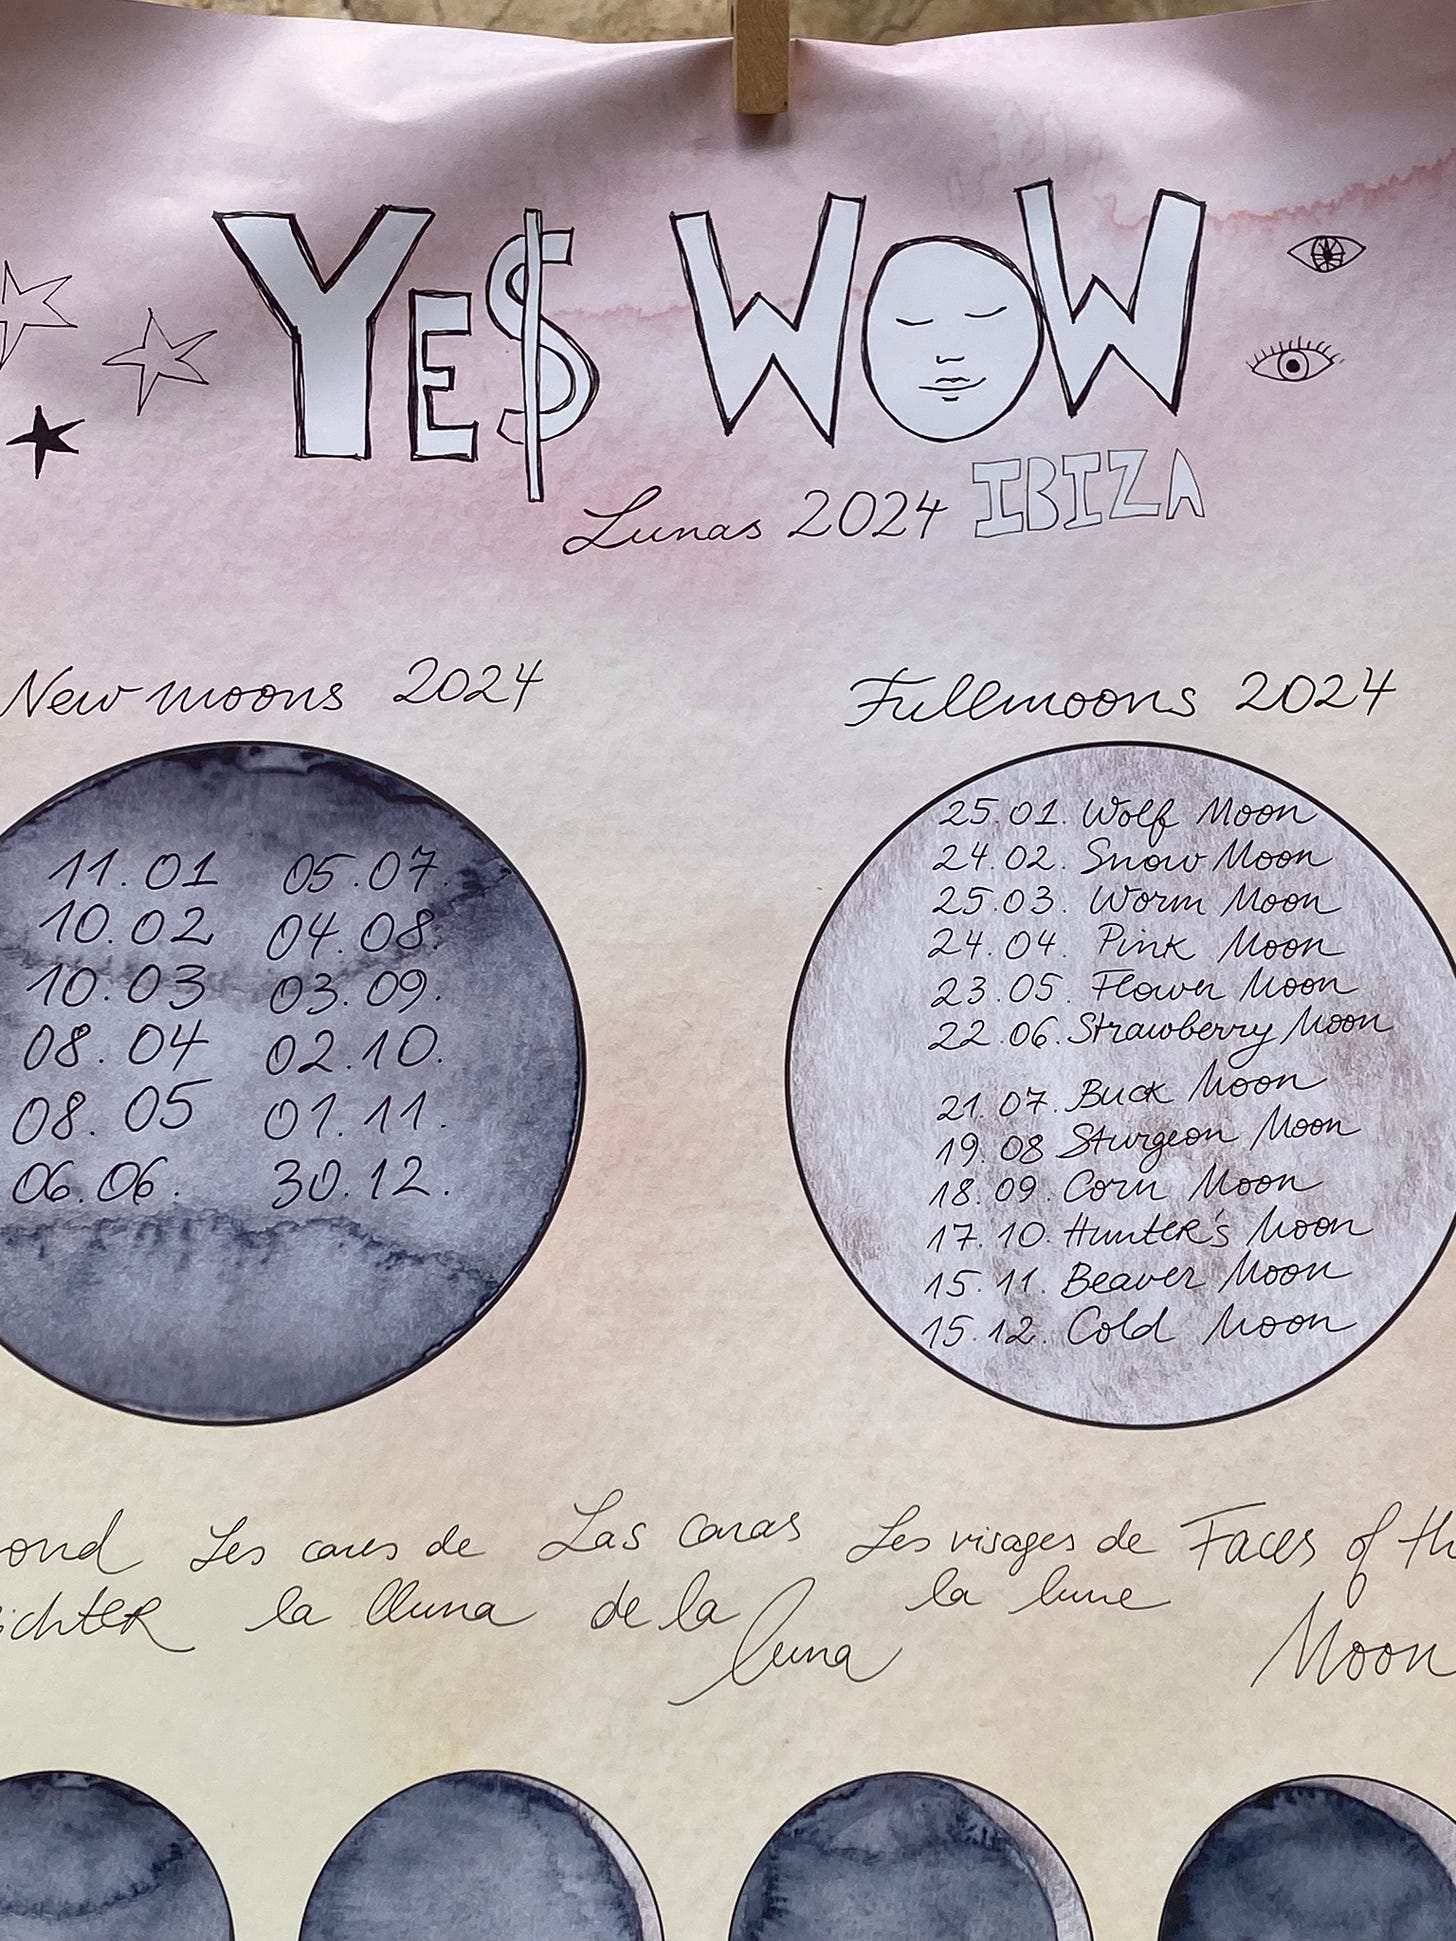 YE$ WOW
Lunas 2024 IBIZA
New moons 2024
11.01 05.07.
10.02 04.08.
10.03 03.09.
08.04 02.10.
08.05 01.11.
06.06. 30.12.
Fullmoons 2024
25.01. Wolf Moon
24.02. Snow Moon
25.03. Worm Moon
24.04. Pink Moon
23.05. Flower Moon
22.06. Strawberry Moon
21.07. Buck Moon
19.08 Sturgeon Moon
18.09. Corn Moon
17.10. Hunter's Moon
15.11. Beaver Moon
15.12. Cold Moon
Les cares de
la lluna
Las caras
de la
luna
Les visages de
la lune
Faces of th
Moon